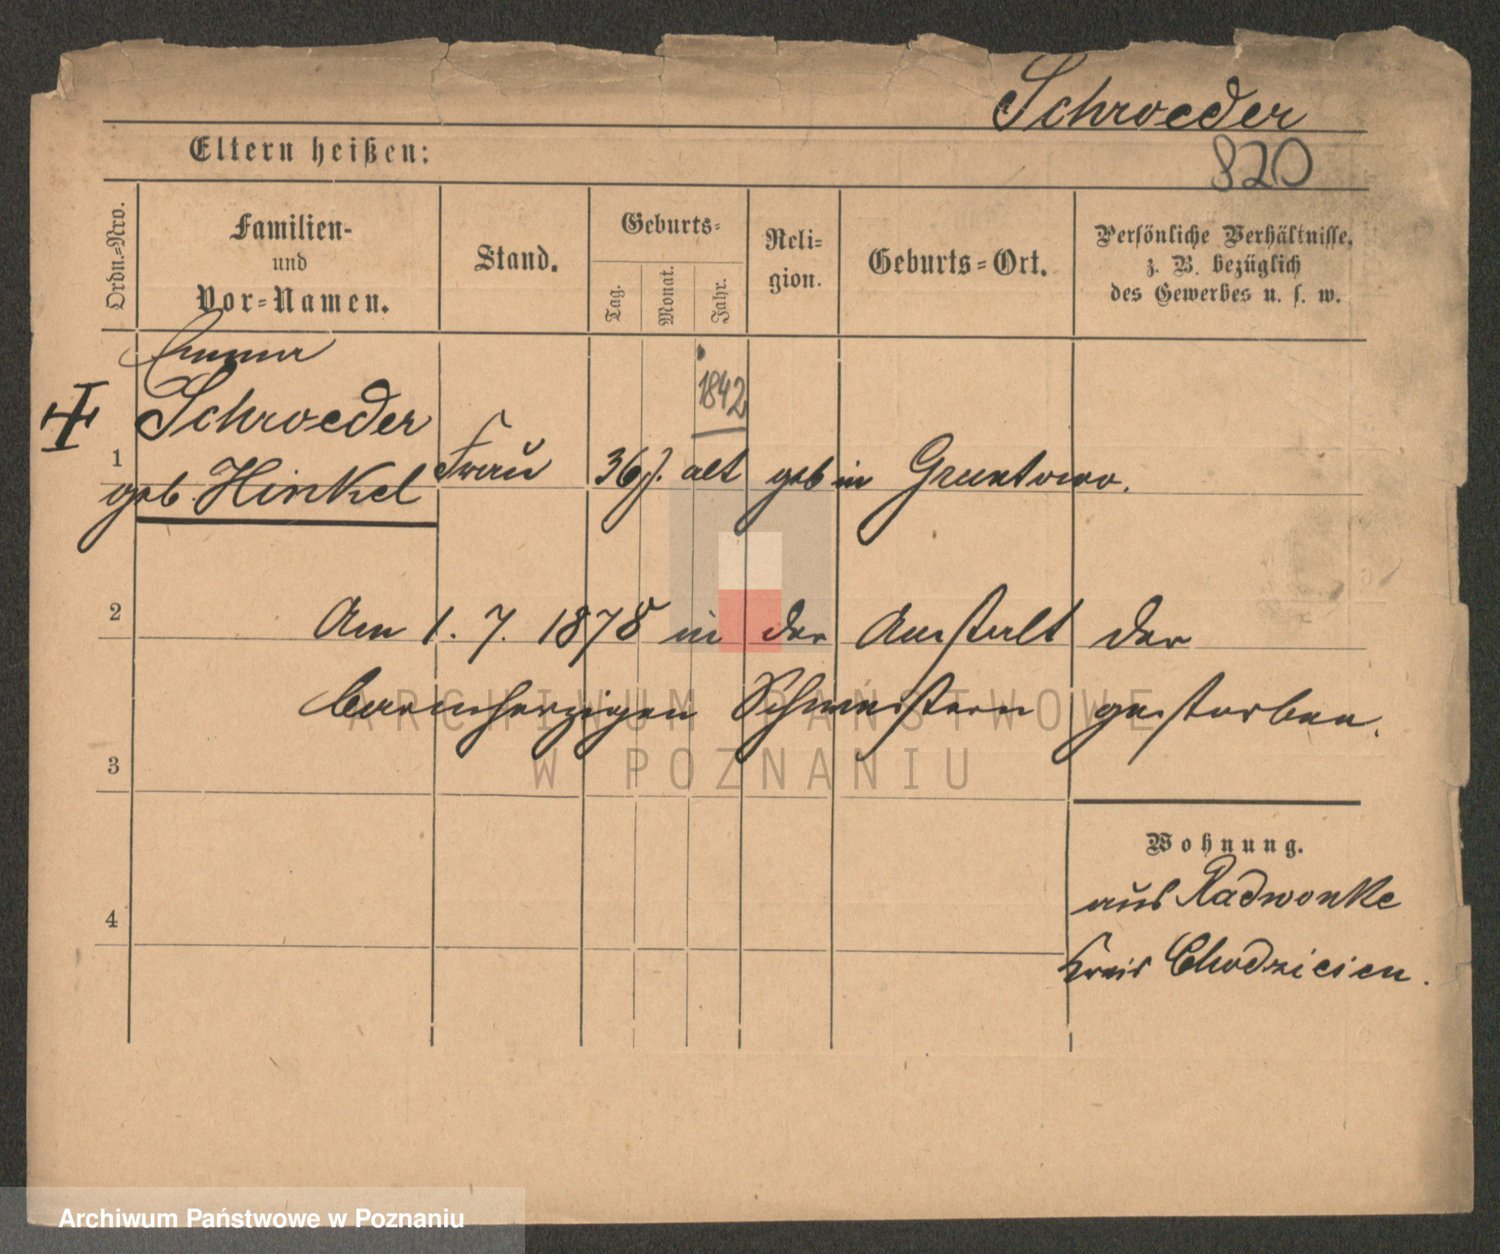 Schroeder
Eltern heißen:
820
Ordn.=Nro.
Familien-
und
Vor=Namen.
Stand.
Geburts=
Tag.
Monat.
Jahr.
Reli=
gion.
Geburts=Ort.
Persönliche Verhältnisse,
z. B. bezüglich
des Gewerbes u. s. w.
Emma
Schroeder
1842
1
geb. Hinkel Frau 36 J. alt geb in Gruntowo.
2
Am 1. 7. 1878 in der Anstalt der
barmherzigen Schwestern gestorben.
ARCHIWUM PAŃSTWOWE
W POZNANIU
3
Wohnung.
aus Radwonke
4
Kreis Chodziesen.
Archiwum Państwowe w Poznaniu